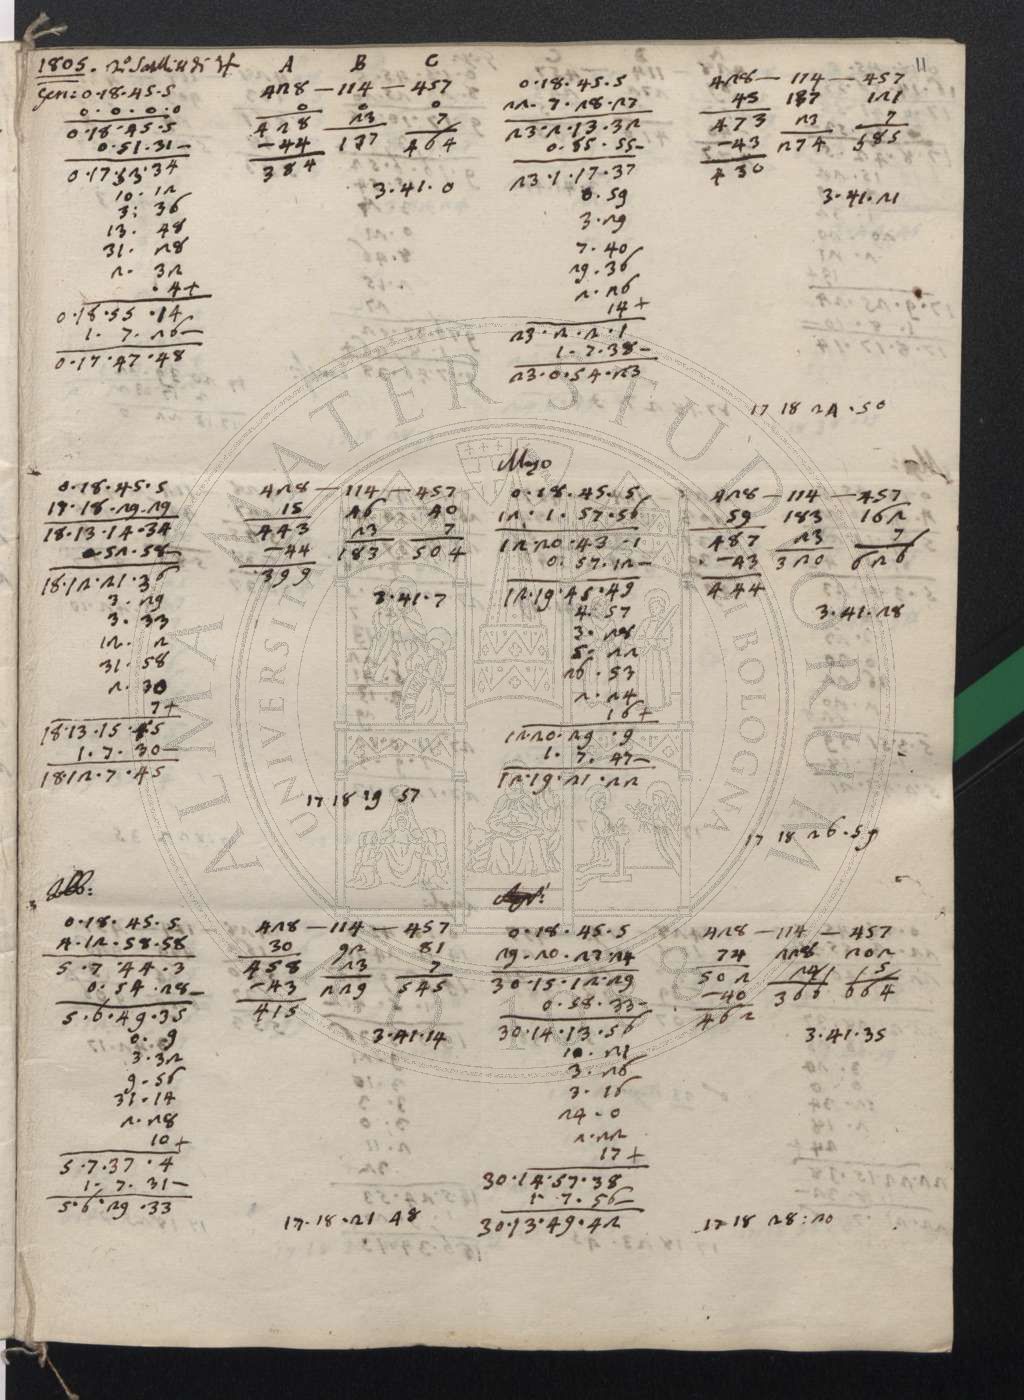 1805. 2° Satellite di ♃ A B C
Gen: 0.18.45.5 428 — 114 — 457
0.0.0.0 0 0 0
0.18.45.5 428 23 7
0.51.31- -44 137 464
0.17.53.34 384
10.12 3.41.0
3.36
13.48
31.28
2.32
.4+
0.18.55.14
1.7.26-
0.17.47.48
11
0.18.45.5 428 — 114 — 457
22.7.28.27 45 137 121
23.2.13.32 473 23 7
0.55.55- -43 274 585
23.1.17.37 430
0.59 3.41.21
3.29
7.40
29.36
2.26
14+
23.2.2.1
1.7.38-
23.0.54.23
17 18 24.50
0.18.45.5 428 — 114 — 457
17.18.29.29 15 46 40
18.13.14.34 443 23 7
0.52.58- -44 183 504
18.12.21.36 399
3.29 3.41.7
3.33
12.2
31.58
2.30
7+
18.13.15.15
1.7.30-
18.12.7.45
17 18 19 57
Mayo
0.18.45.5 428 — 114 — 457
12.1.57.56 59 183 162
12.20.43.1 487 23 7
0.57.12- -43 320 626
12.19.45.49 444
4.57 3.41.28
3.28
5.22
26.53
2.24
16+
12.20.29.9
1.7.47-
12.19.21.22
17 18 26.59
0.18.45.5 428 — 114 — 457
4.12.58.58 30 92 81
5.7.44.3 458 23 7
0.54.28- -43 229 545
5.6.49.35 415
0.9 3.41.14
3.32
9.56
31.14
2.28
10+
5.7.37.4
1.7.31-
5.6.29.33
17.18.21 48
0.18.45.5 428 — 114 — 457
29.20.27.24 74 228 202
30.15.12.29 502 24 5
0.58.33- -40 366 664
30.14.13.56 462
10.21 3.41.35
3.26
3.16
24.0
2.22
17+
30.14.57.38
1.7.56-
30.13.49.42
17 18 28:20